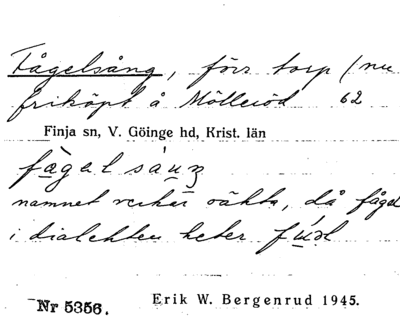 Fågelsång, förr torp (nu
friköpt å Mölleröd 62
Finja sn, V. Göinge hd, Krist. län
fågəlsåuŋ
namnet verkar oäkta, då fågel
i dialekten heter
Nr 5356. Erik W. Bergenrud 1945.